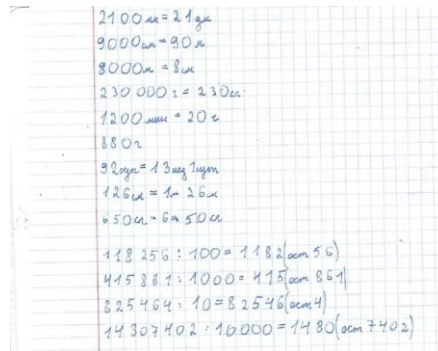 2100мм = 21дм
9000см = 90м
8000м = 8см
230 000г = 230кг
1200мин = 20ч
880г
92сут = 13нед 1сут
126см = 1м 26см
650см = 6м 50см
118 256 : 100 = 1182(ост 56)
415 861 : 1000 = 415(ост 861)
825464 : 10 = 82546(ост4)
14 307402 : 10 000 = 1480(ост 7402)